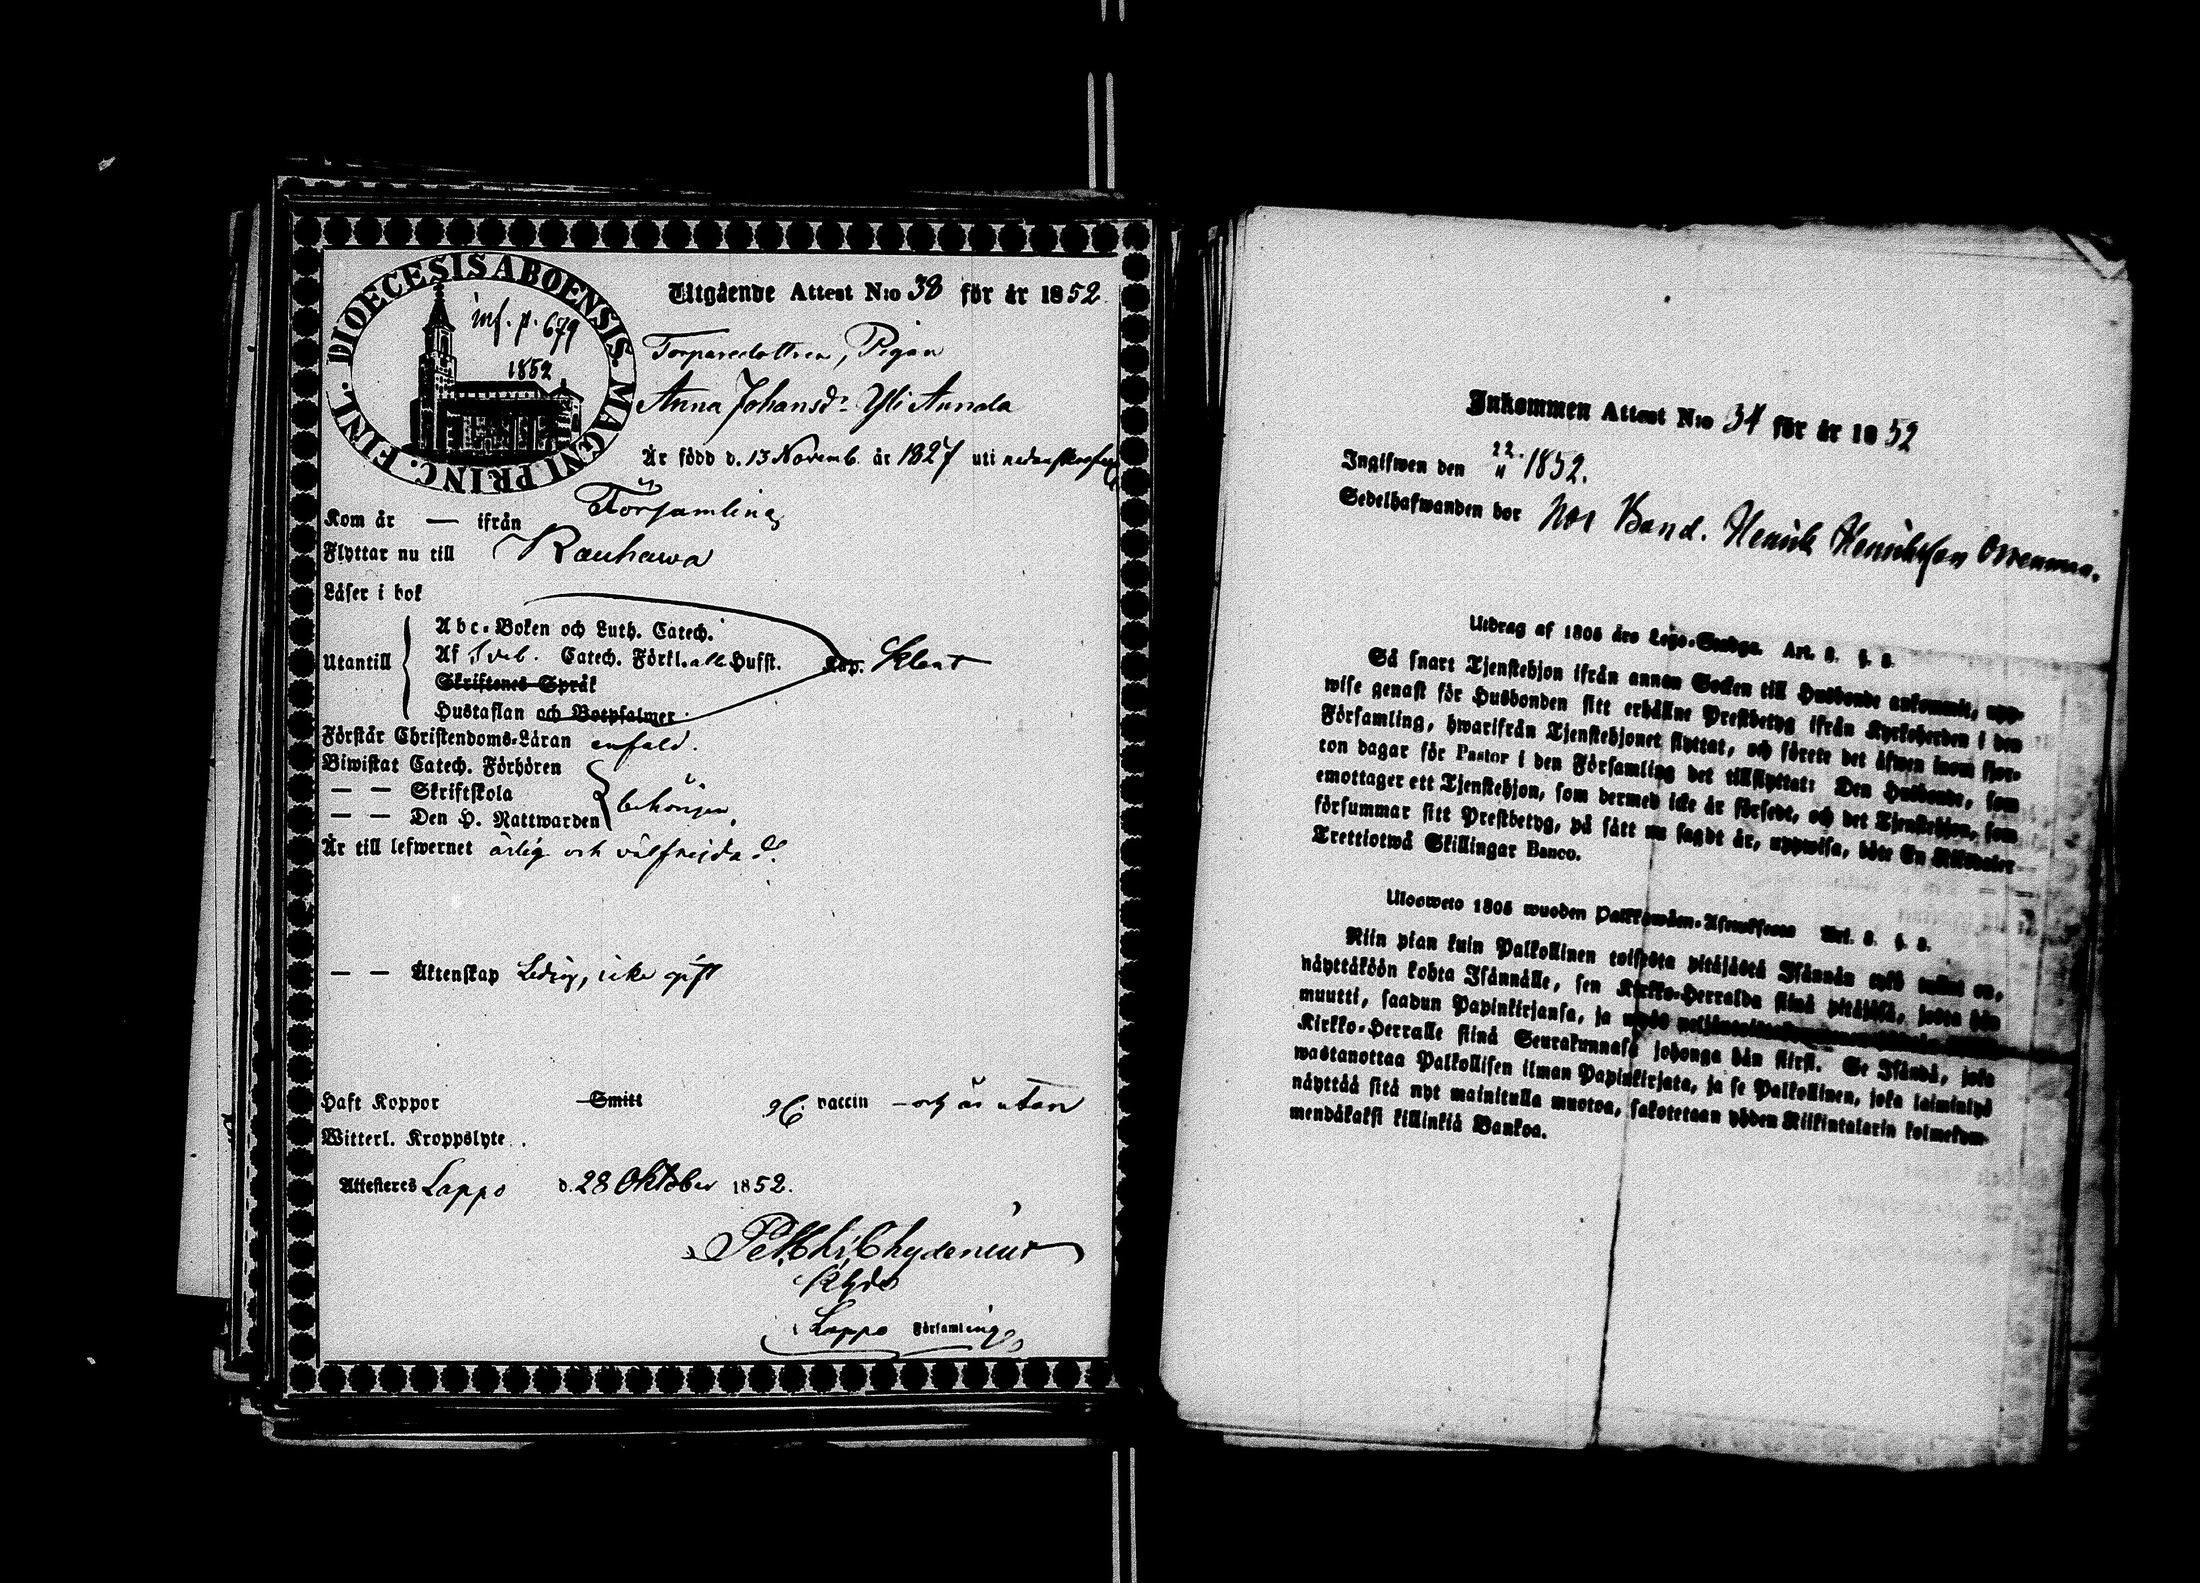 DIOECESIS ABOENSIS. MAGNI PRINC. FINL.
inf. p. 679
1852
Utgående Attest N:o 38 för år 1852
Torparedottren, Pigan
Anna Johansdr Yli Annala
Är född d. 13 Novemb. år 1827 uti
Församling
Kom år — ifrån
Flyttar nu till Kauhawa
Läser i bok
Utantill
Abc-Boken och Luth. Catech.
Af Sveb. Catech. Förkl. alla Hufst.
Skriftenes Språk
Hustaflan och Botpsalmer
Förstår Christendoms-Läran enfald.
Biwistat Catech. Förhören
— — Skriftskola
— — Den H. Nattwarden
behörigen
Är till lefwernet ärlig och välfrejdad.
— — Äktenskap Ledig, icke gift
Haft Koppor Smitt vaccin och är utan
Witterl. Kroppslyte.
Attesteres Lappo d. 28 Oktober 1852.
Chydenius
Lappo Församling
Inkommen Attest N:o 34 för år 1852
Ingifwen den 22/11 1852.
Sedelhafwanden bor hos Bond. Henrik Henriksson
Utdrag af 1805 års Lego-Stadga. Art. 8. §. 8.
Så snart Tjenstehjon ifrån annan Socken till Husbonde ankommit, upp-
wise genast för Husbonden sitt erhållne Prestbetyg ifrån Kyrkoherden i den
Församling, hwarifrån Tjenstehjonet flyttat, och förete det äfwen inom fjor-
ton dagar för Pastor i den Församling det tillflyttat: Den Husbonde, som
emottager ett Tjenstehjon, som dermed icke är försedt, och det Tjenstehjon, som
försummar sitt Prestbetyg, på sätt nu sagdt är, uppwisa, böte En Riksdaler
Trettiotwå Skillingar Banco.
Ulosweto 1805 wuoden Palkkawäen-Asetuksesta Art. 8. §. 8.
Niin pian kuin Palkollinen toisesta pitäjästä Isännän tykö tullut on,
näyttäköön kohta Isännälle, sen Kirkko-Herralda siinä pitäjäsä, josta hän
muutti, saadun Papinkirjansa, ja myös
Kirkko-Herralle siinä Seurakunnasa johonga hän siirsi. Se Isändä, joka
wastanottaa Palkollisen ilman Papinkirjata, ja se Palkollinen, joka laiminlyö
näyttää sitä nyt mainitulla muotoa, sakotetaan yhden Riikintalarin kolmekym-
mendäkaksi killinkiä Bankoa.